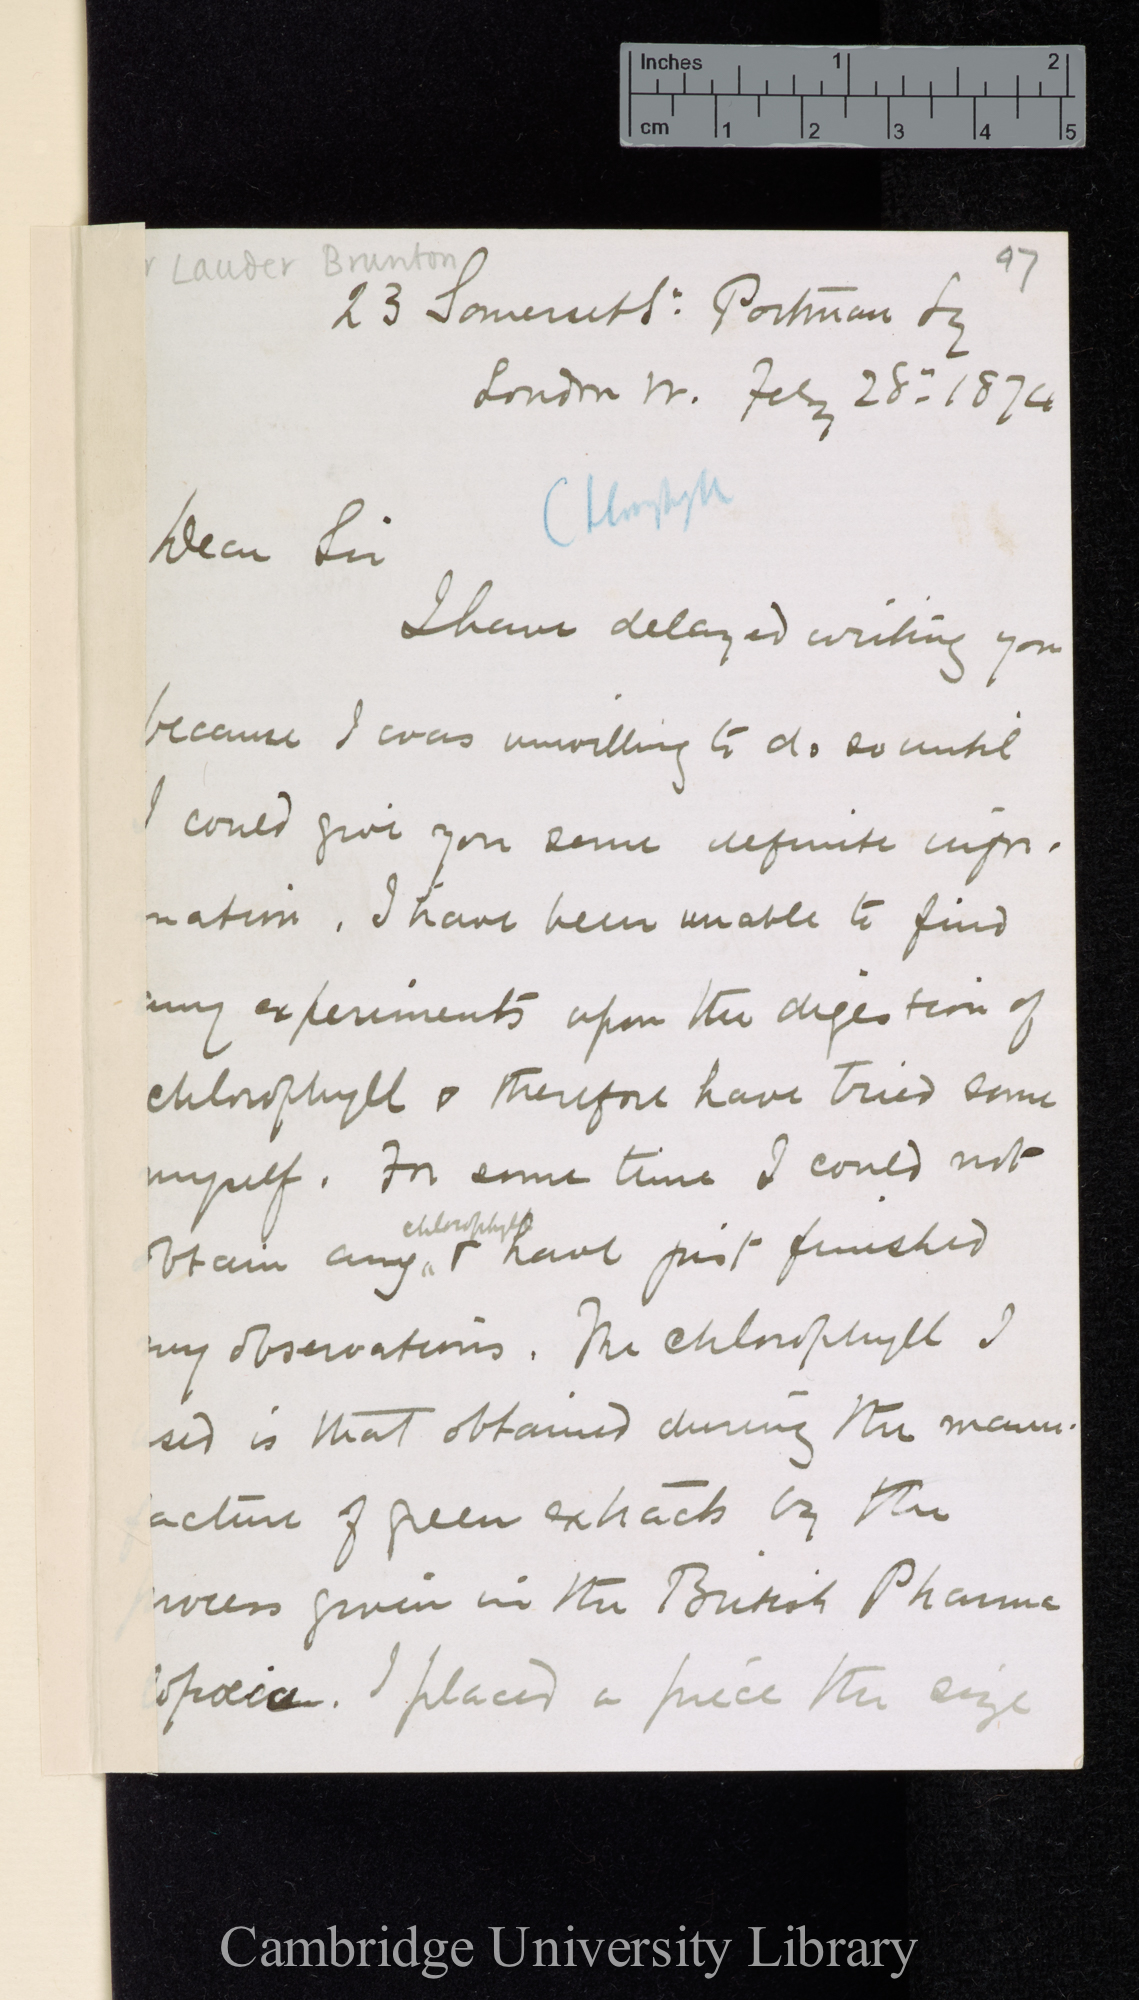 Inches 1 2
cm 1 2 3 4 5
r Lauder Brunton
97
23 Somerset St. Portman Sq
London W. Feby 28th 1874
(Chlorophyll
Dear Sir
I have delayed writing you
because I was unwilling to do so until
I could give you some definite infor-
mation. I have been unable to find
any experiments upon the digestion of
chlorophyll & therefore have tried some
myself. For some time I could not
chlorophyll
obtain any & have just finished
my observations. The chlorophyll I
used is that obtained during the manu-
facture of green extracts by the
process given in the British Pharma
copoeia. I placed a piece the size
Cambridge University Library